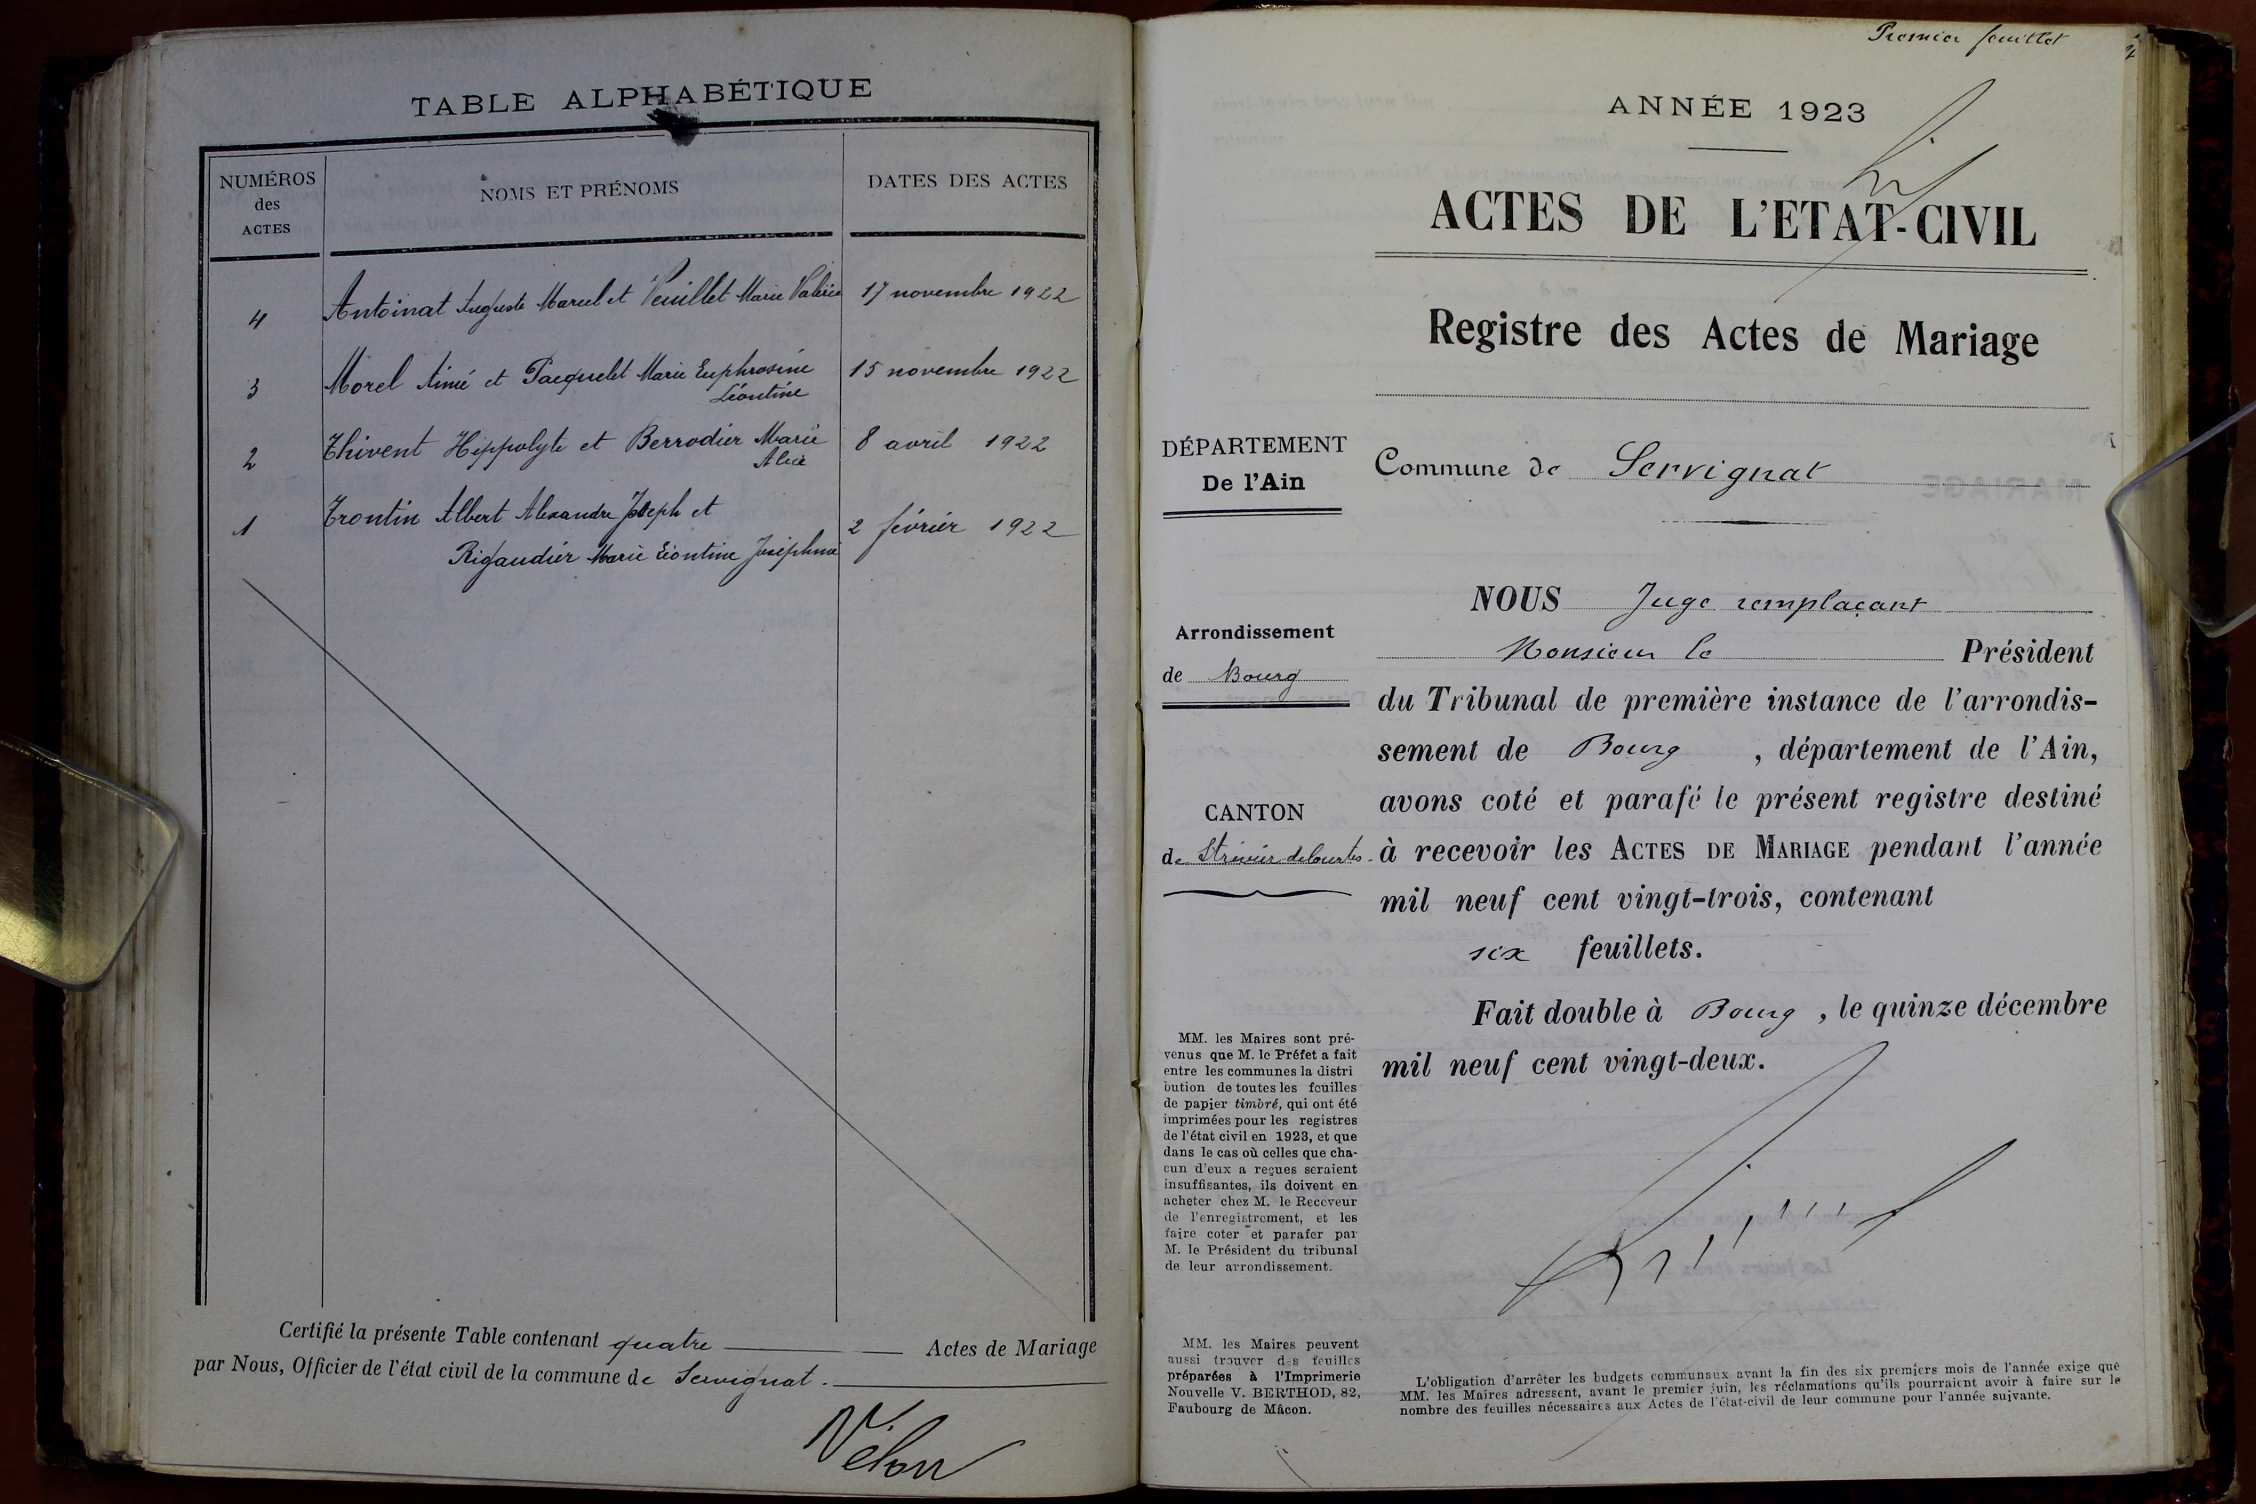 TABLE ALPHABÉTIQUE
NUMÉROS
des
ACTES
NOMS ET PRÉNOMS
DATES DES ACTES
4 Antoinat Auguste Marcel et Veuillet Marie Valérie 17 novembre 1922
3 Morel Aimé et Pacquelet Marie Euphrosine 15 novembre 1922
Léontine
2 Thivent Hippolyte et Berrodier Marie 8 avril 1922
Alice
1 Trontin Albert Alexandre Joseph et 2 février 1922
Rigaudier Marie Léontine Joséphine
Certifié la présente Table contenant quatre Actes de Mariage
par Nous, Officier de l'état civil de la commune de Servignat.
Premier feuillet
ANNÉE 1923
ACTES DE L'ETAT-CIVIL
Registre des Actes de Mariage
DÉPARTEMENT
De l'Ain
Commune de Servignat
Arrondissement
de Bourg
CANTON
de St Trivier de Courtes
NOUS Juge remplaçant
Monsieur le Président
du Tribunal de première instance de l'arrondis-
sement de Bourg, département de l'Ain,
avons coté et parafé le présent registre destiné
à recevoir les ACTES DE MARIAGE pendant l'année
mil neuf cent vingt-trois, contenant
six feuillets.
Fait double à Bourg, le quinze décembre
mil neuf cent vingt-deux.
MM. les Maires sont pré-
venus que M. le Préfet a fait
entre les communes la distri
bution de toutes les feuilles
de papier timbré, qui ont été
imprimées pour les registres
de l'état civil en 1923, et que
dans le cas où celles que cha-
cun d'eux a reçues seraient
insuffisantes, ils doivent en
acheter chez M. le Receveur
de l'enregistrement, et les
faire coter et parafer par
M. le Président du tribunal
de leur arrondissement.
MM. les Maires peuvent
aussi trouver des feuilles
préparées à l'Imprimerie
Nouvelle V. BERTHOD, 82,
Faubourg de Mâcon.
L'obligation d'arrêter les budgets communaux avant la fin des six premiers mois de l'année exige que
MM. les Maires adressent, avant le premier juin, les réclamations qu'ils pourraient avoir à faire sur le
nombre des feuilles nécessaires aux Actes de l'état-civil de leur commune pour l'année suivante.